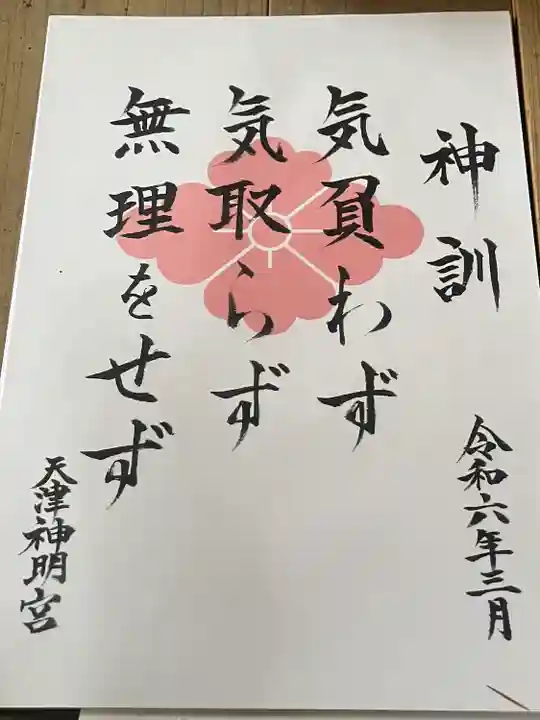 神訓
令和六年三月
気負わず
気取らず
無理をせず
天津神明宮